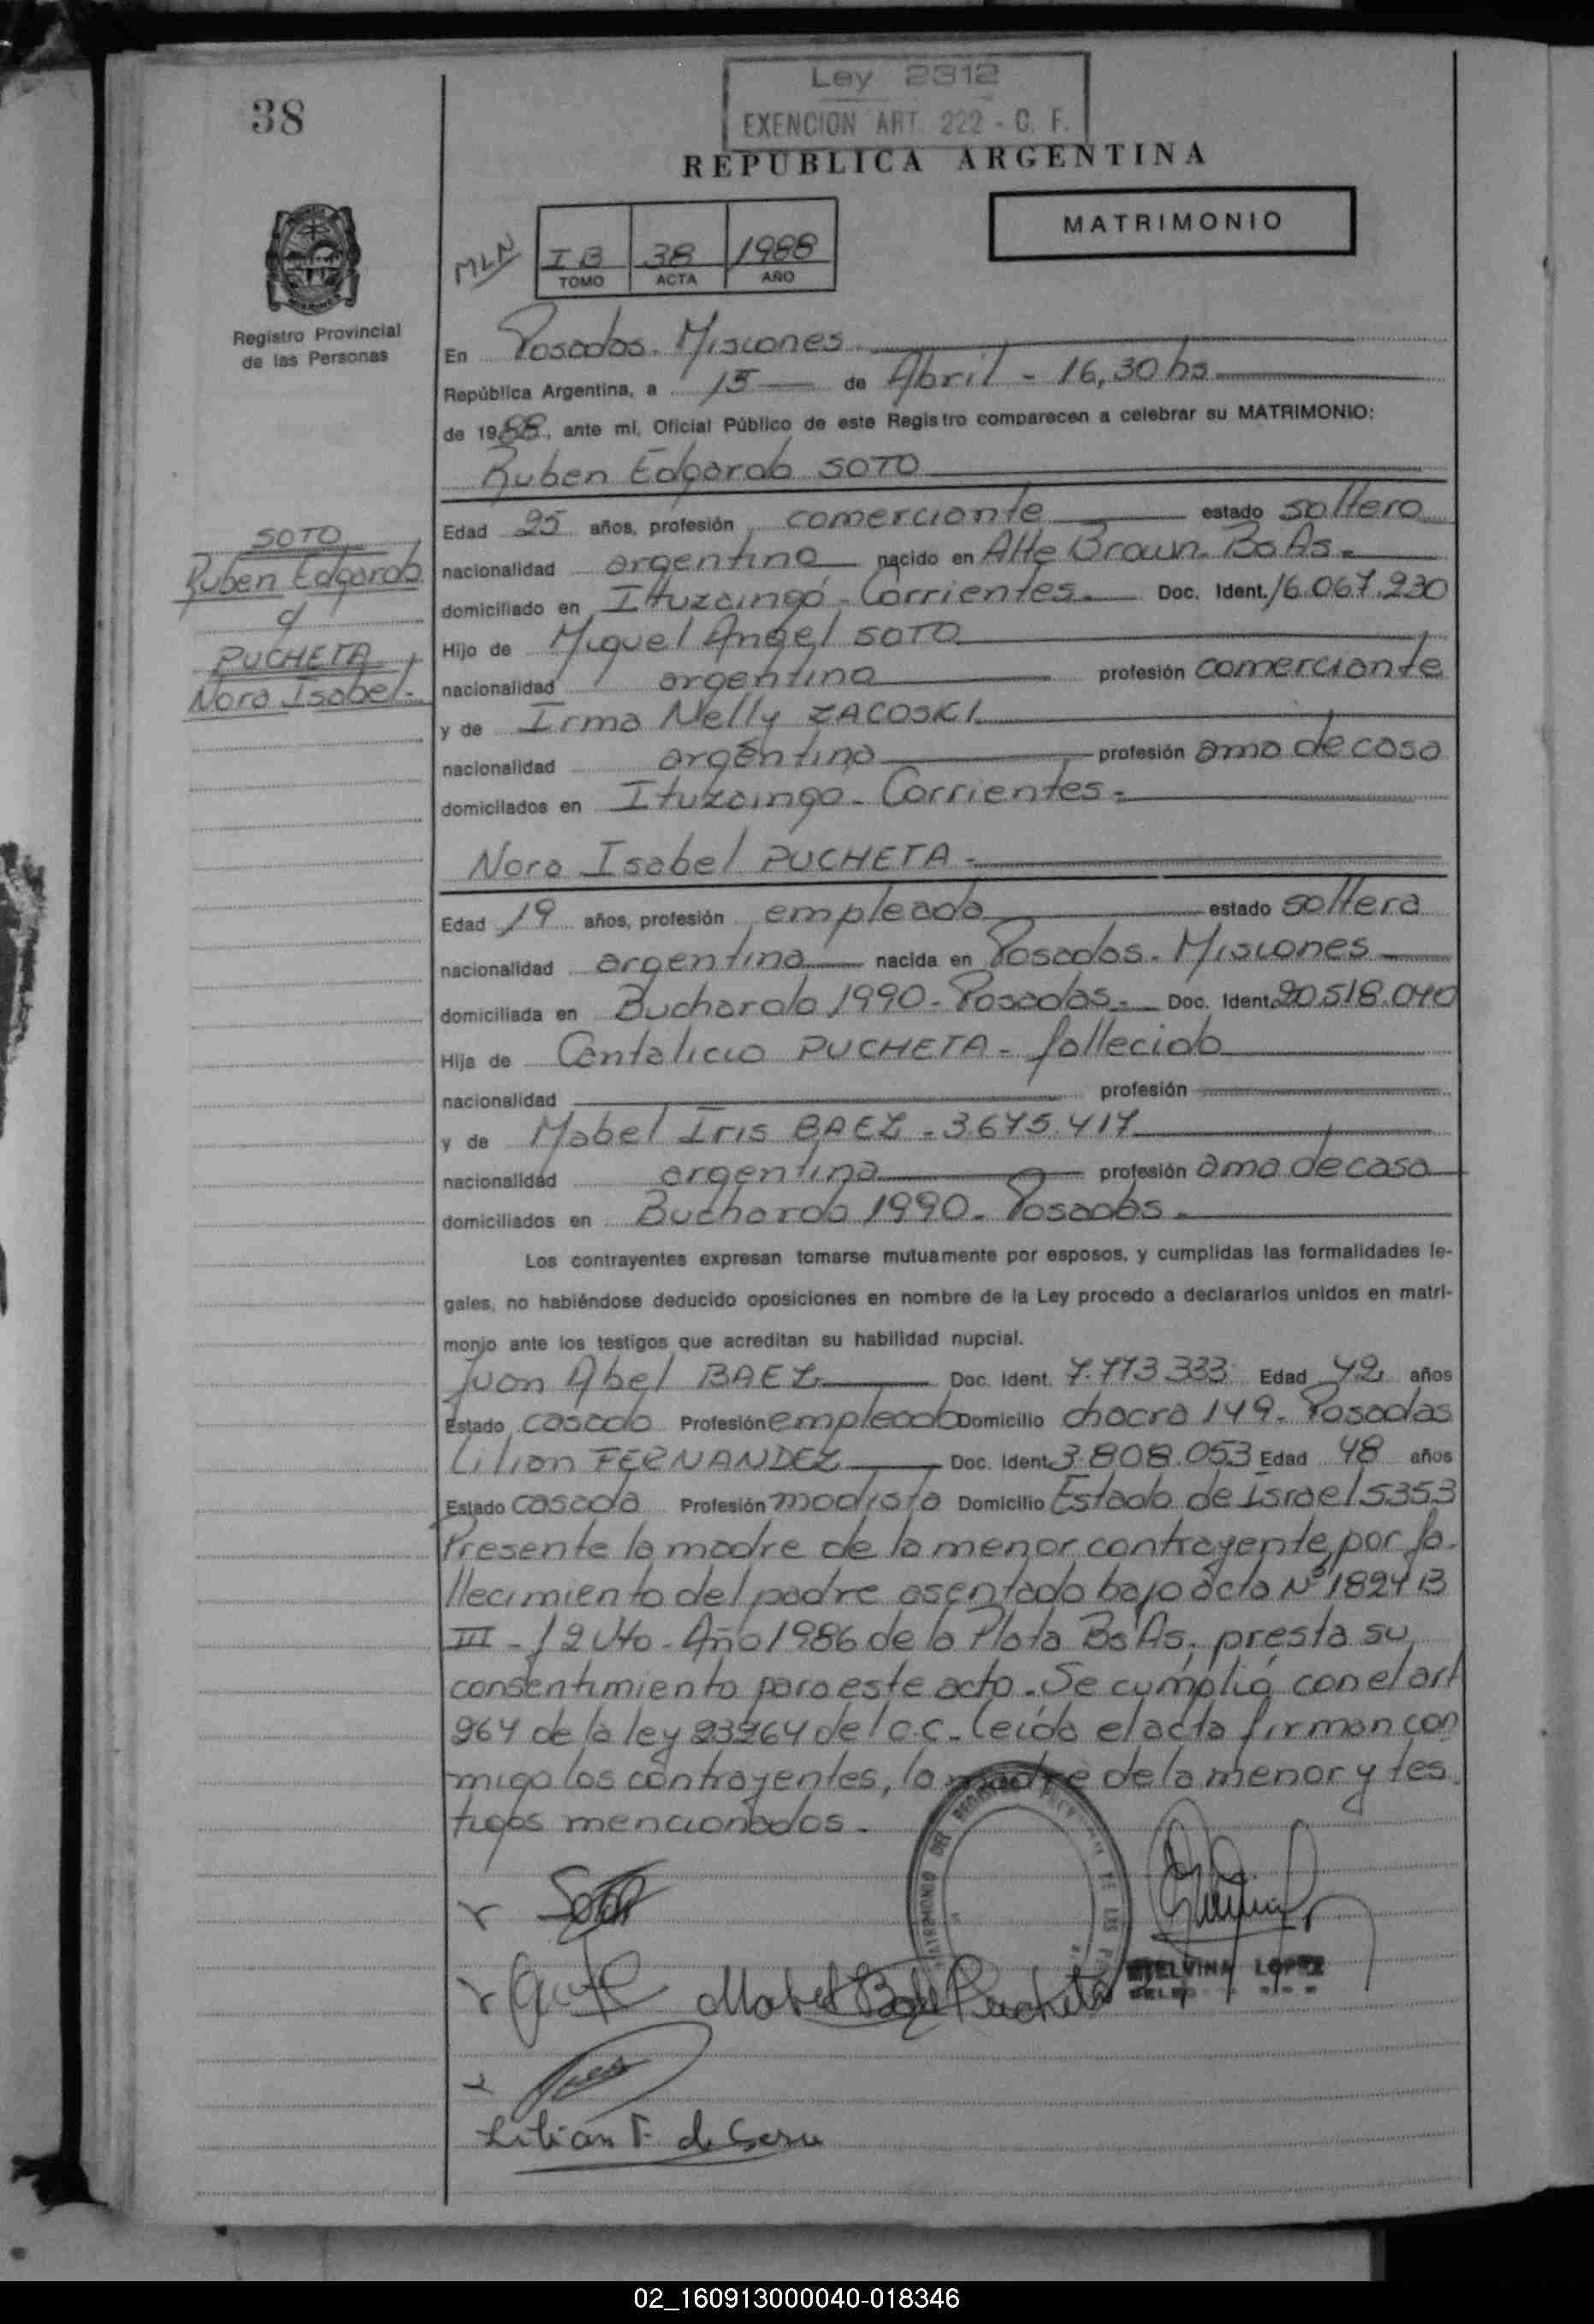 Ley 2312
EXENCION ART. 222 - C. F.
38
REPUBLICA ARGENTINA
MATRIMONIO
MLN
I B 38 1988
TOMO ACTA AÑO
Registro Provincial
de las Personas
En Posadas. Misiones
República Argentina, a 15 de Abril - 16,30 hs
de 1988, ante mí, Oficial Público de este Registro comparecen a celebrar su MATRIMONIO:
Ruben Edgardo SOTO
SOTO
Ruben Edgardo
PUCHETA
Nora Isabel.-
Edad 25 años, profesión comerciante estado soltero
nacionalidad argentina nacido en Alte Brown. Bs As.
domiciliado en Ituzaingó - Corrientes. Doc. Ident. 16.067.230
Hijo de Miguel Angel SOTO
nacionalidad argentina profesión comerciante
y de Irma Nelly ZACOSKI
nacionalidad argentina profesión ama de casa
domicilados en Ituzaingo - Corrientes.
Nora Isabel PUCHETA -
Edad 19 años, profesión empleada estado soltera
nacionalidad argentina nacida en Posadas. Misiones
domiciliada en Buchardo 1990 - Posadas. Doc. Ident. 20.518.040
Hija de Cantalicio PUCHETA - fallecido
nacionalidad profesión
y de Mabel Iris BAEZ - 3.675.417
nacionalidad argentina profesión ama de casa
domiciliados en Buchardo 1990 - Posadas.
Los contrayentes expresan tomarse mutuamente por esposos, y cumplidas las formalidades le-
gales, no habiéndose deducido oposiciones en nombre de la Ley procedo a declararlos unidos en matri-
monio ante los testigos que acreditan su habilidad nupcial.
Juan Abel BAEZ Doc. Ident. 7.773.333 Edad 42 años
Estado casado Profesión empleado Domicilio chacra 149 - Posadas
Lilian FERNANDEZ Doc. Ident. 3.808.053 Edad 48 años
Estado casada Profesión modista Domicilio Estado de Israel 5353
Presente la madre de la menor contrayente, por fa-
llecimiento del padre asentado bajo acta Nº 1824 B
III - Año 1986 de la Plata Bs As, presta su
consentimiento para este acto. Se cumplió con el art
264 de la ley 23264 del c.c. Leída el acta firman con
migo los contrayentes, la madre de la menor y tes
tigos mencionados.
Soto
Mabel Baez Pucheta
ETELVINA LOPEZ
Lilian F. de
02_160913000040-018346